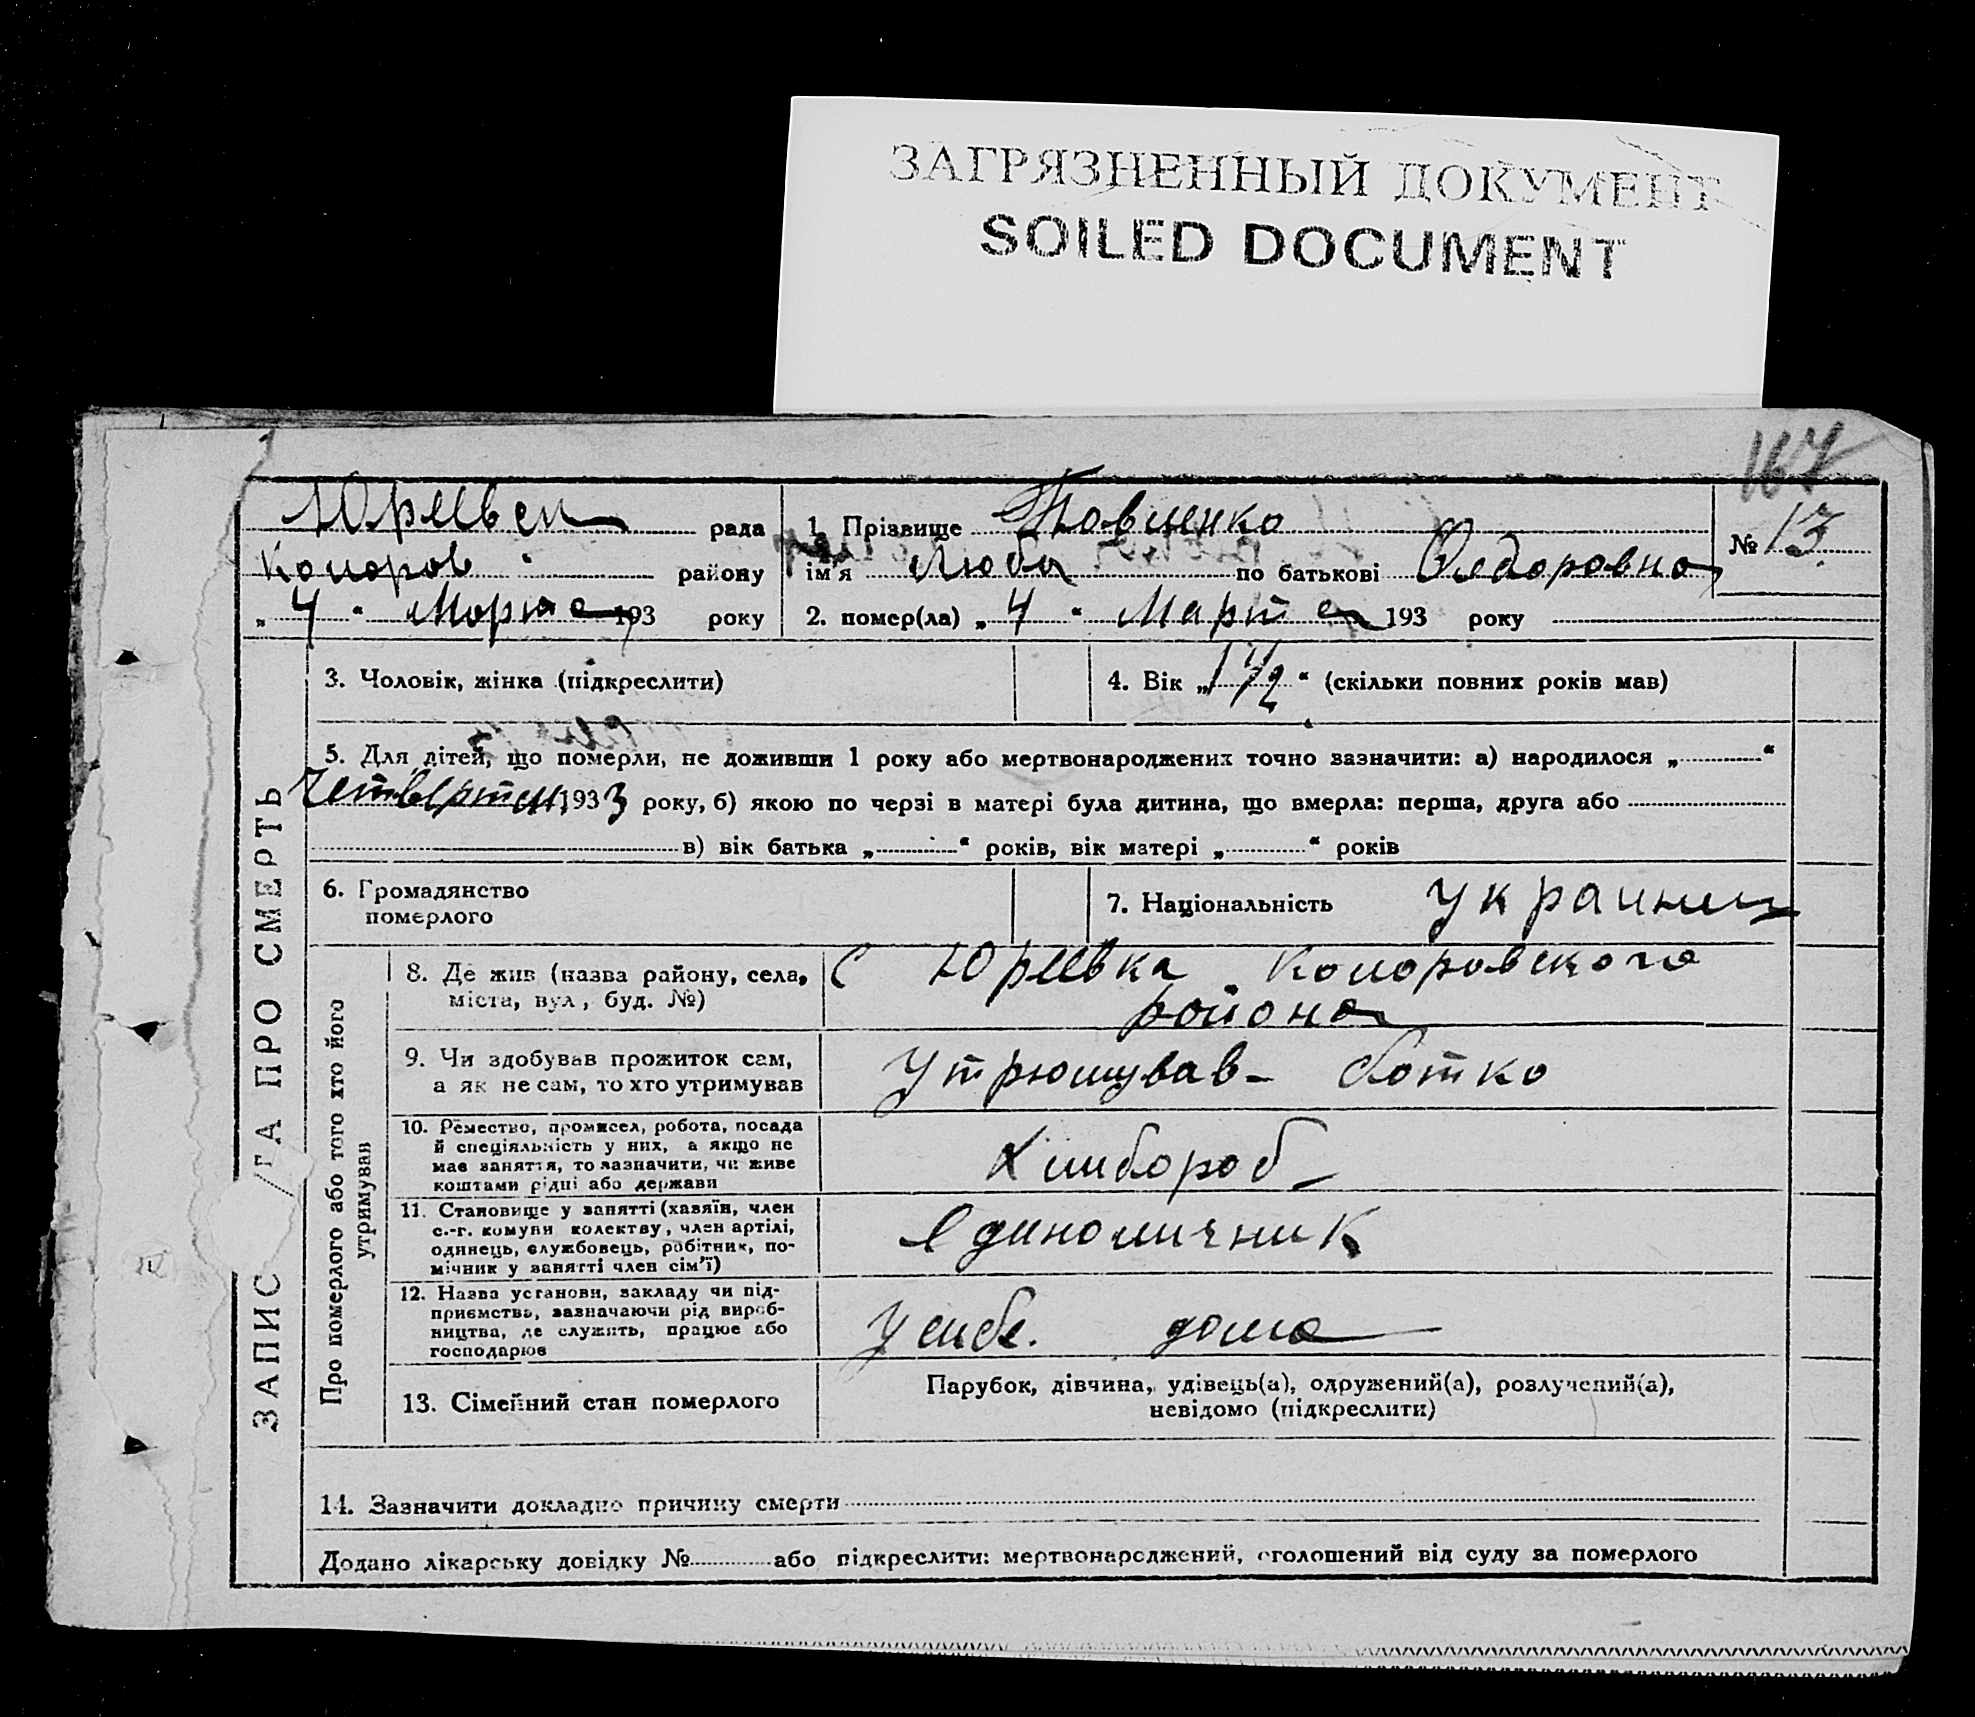 ЗАГРЯЗНЕННЫЙ ДОКУМЕНТ
SOILED DOCUMENT
167
рада
1. Прізвище
№ 13
району
ім'я Люба по батькові
„ 4 “ Марта 193 року
2. помер(ла) „ 4 “ Марта 193 року
3. Чоловік, жінка (підкреслити)
4. Вік „ 1 1/2 “ (скільки повних років мав)
5. Для дітей, що померли, не доживши 1 року або мертвонароджених точно зазначити: а) народилося „ “
1933 року, б) якою по черзі в матері була дитина, що вмерла: перша, друга або
в) вік батька „ “ років, вік матері „ “ років
6. Громадянство
померлого
7. Національність
ЗАПИС ПРО СМЕРТЬ
Про померлого або того хто його
утримував
8. Де жив (назва району, села,
міста, вул, буд. №)
с Юреевка
района
9. Чи здобував прожиток сам,
а як не сам, то хто утримував
батко
10. Ремество, промисел, робота, посада
й спеціяльність у них, а якщо не
має заняття, то зазначити, чи живе
коштами рідні або держави
11. Становище у занятті (хазяїн, член
с.-г. комуни колектву, член артілі,
одинець, службовець, робітник, по-
мічник у занятті член сім'ї)
единоличник
12. Назва установи, закладу чи під-
приємства, зазначаючи рід вироб-
ництва, де служить, працює або
господарює
У себе. дома
13. Сімейний стан померлого
Парубок, дівчина, удівець(а), одружений(а), розлучений(а),
невідомо (підкреслити)
14. Зазначити докладно причину смерти
Додано лікарську довідку № або підкреслити: мертвонароджений, оголошений від суду за померлого